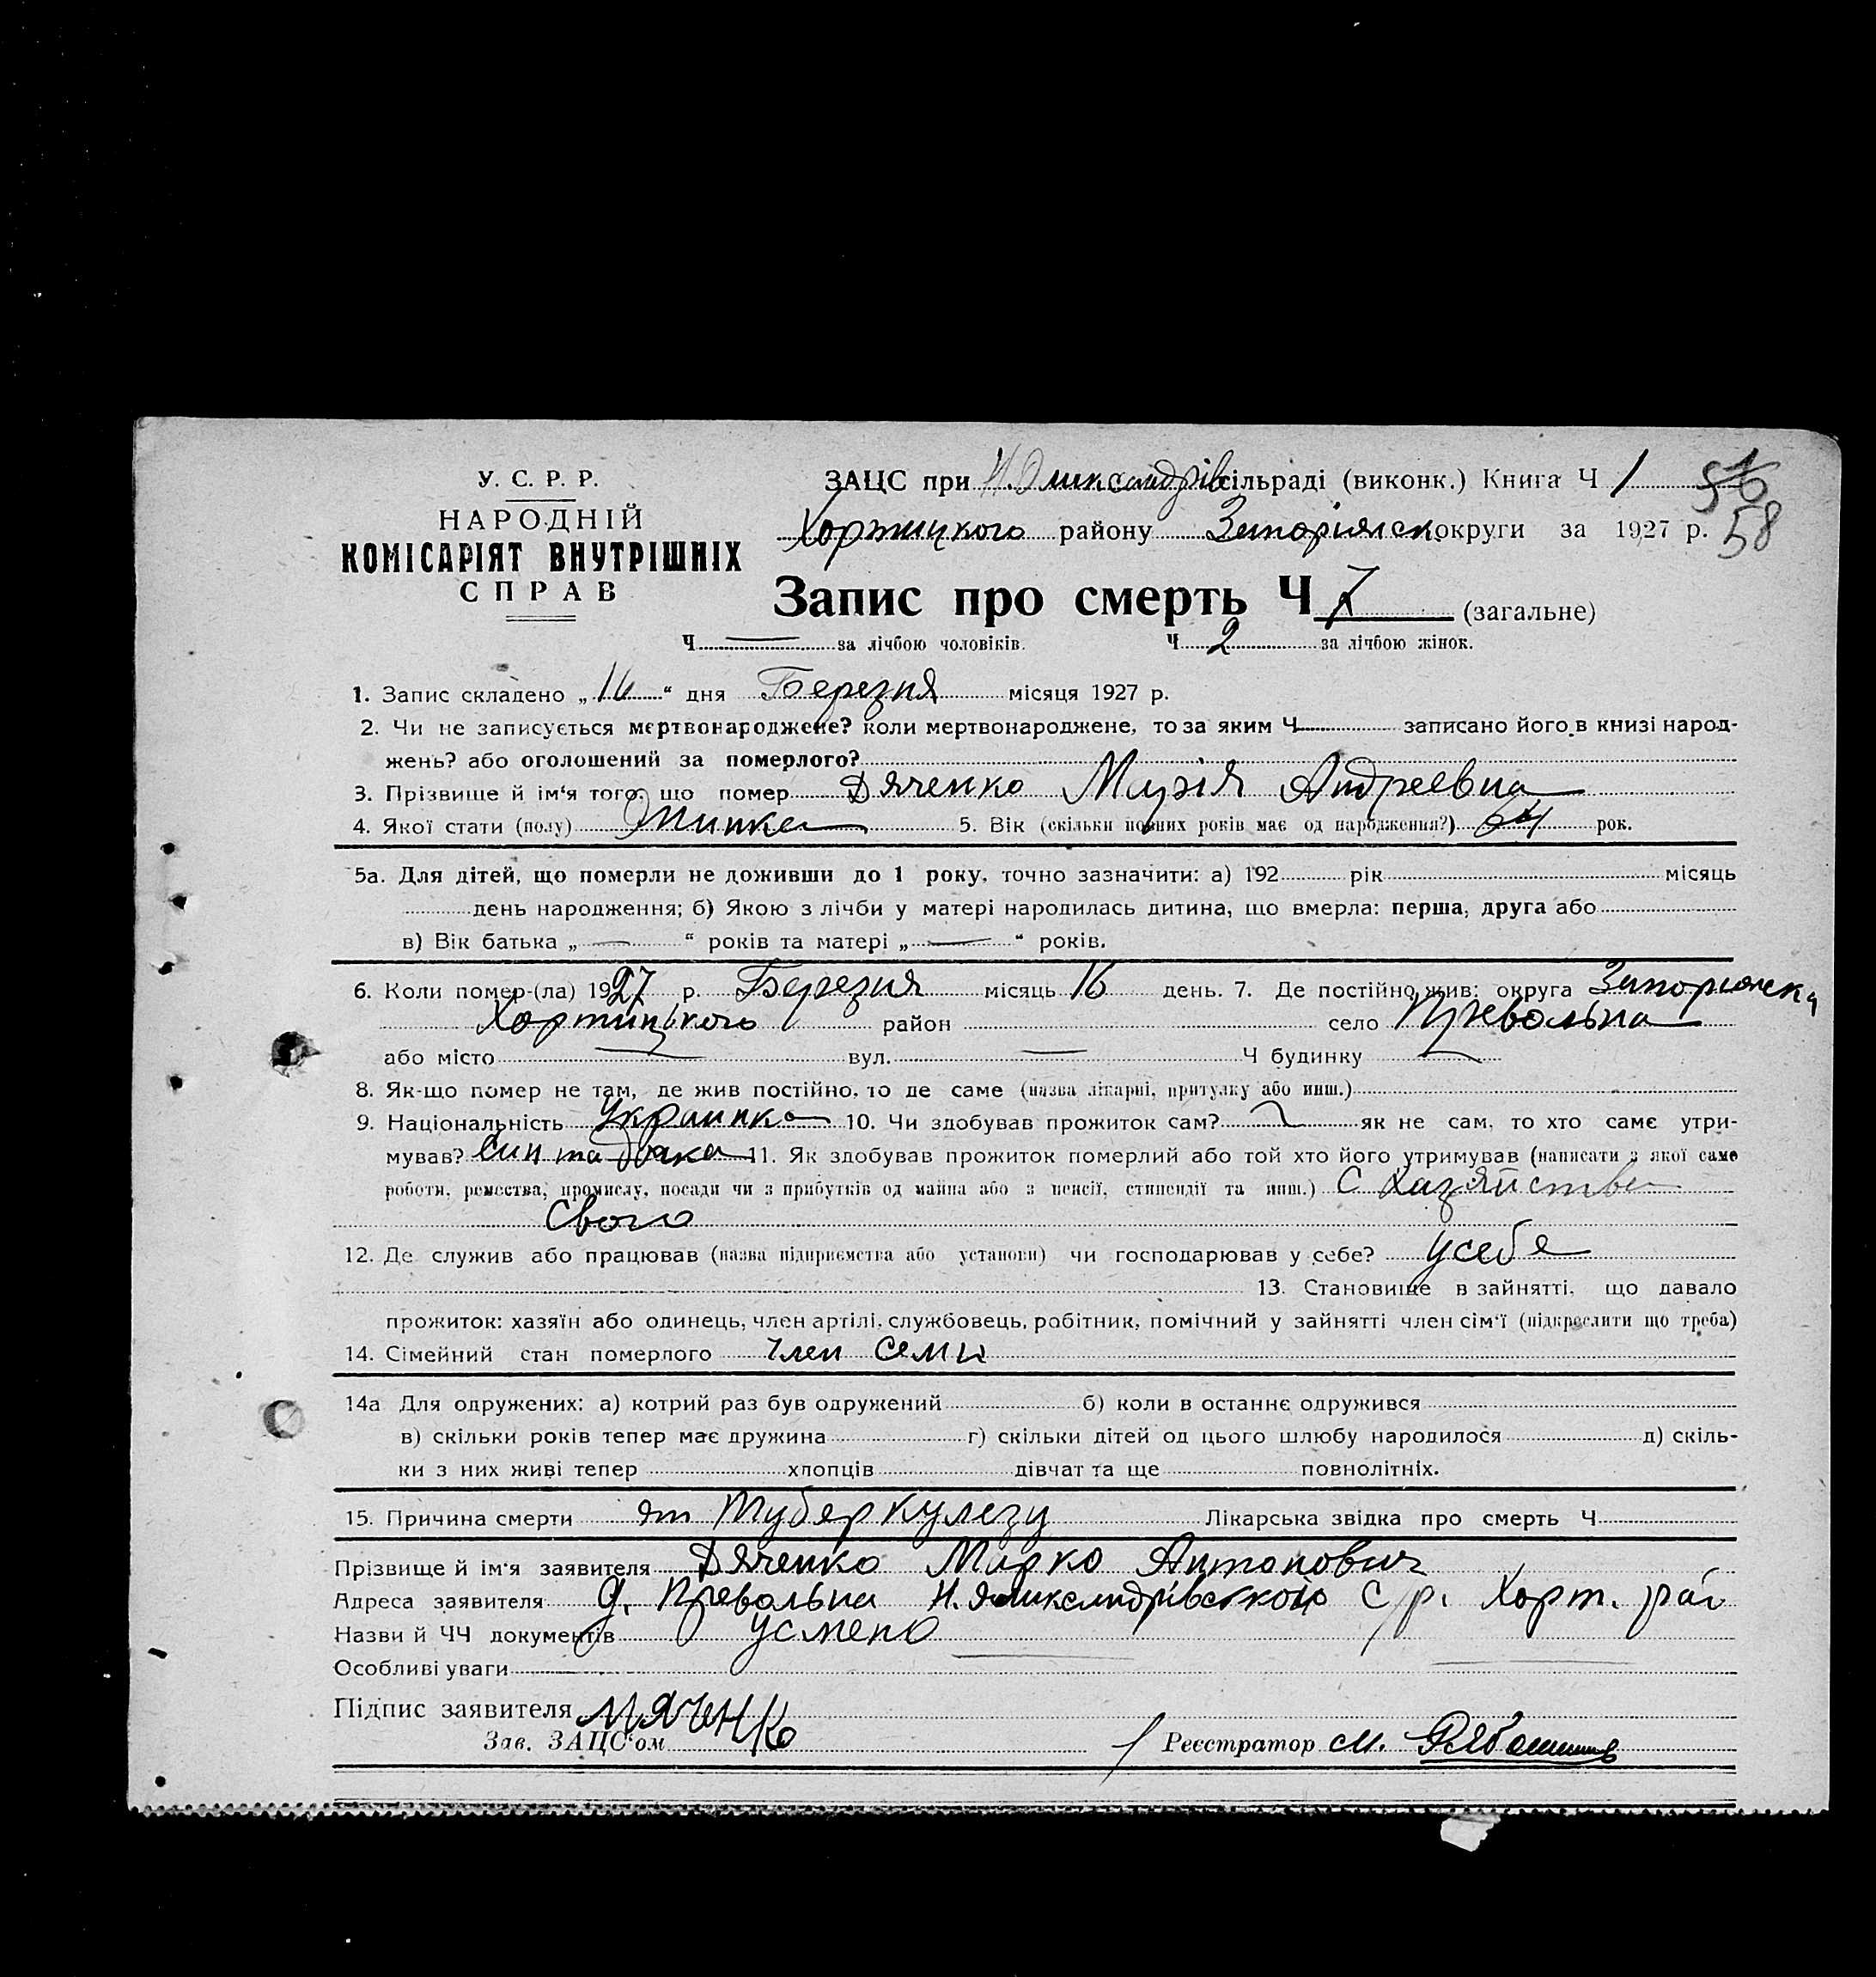 У. С. Р. Р.
НАРОДНІЙ
КОМІСАРІЯТ ВНУТРІШНІХ
СПРАВ
ЗАЦС при Н. Олександрів сільраді (виконк.) Книга Ч 1
58
Хортицкого району Запоріжск округи за 1927 р.
Запис про смерть Ч 7 (загальне)
Ч — за лічбою чоловіків. Ч 2 за лічбою жінок.
1. Запис складено „16“ дня Березня місяця 1927 р.
2. Чи не записується мертвонароджене? коли мертвонароджене, то за яким Ч записано його в книзі народ-
жень? або оголошений за померлого?
3. Прізвище й ім‘я того, що помер Дяченко Марія Андреевна
4. Якої стати (полу) Жинка 5. Вік (скільки повних років має од народження?) 64 рок.
5а. Для дітей, що померли не доживши до 1 року, точно зазначити: а) 192 рік місяць
день народження; б) Якою з лічби у матері народилась дитина, що вмерла: перша, друга або
в) Вік батька „ — “ років та матері „ — “ років.
6. Коли помер-(ла) 1927 р. Березня місяць 16 день. 7. Де постійно жив: округа Запоріжска
Хортицького район село Превольна
або місто — вул. — Ч будинку —
8. Як-що помер не там, де жив постійно, то де саме (назва лікарні, притулку або инш.)
9. Національність Украинка 10. Чи здобував прожиток сам? як не сам, то хто саме утри-
мував? Син та 11. Як здобував прожиток померлий або той хто його утримував (написати з якої саме
роботи, ремества, промислу, посади чи з прибутків од майна або з пенсії, стипендії та инш.) С Хазяйства
Свого
12. Де служив або працював (назва підприємства або установи) чи господарював у себе? усебе
13. Становище в зайнятті, що давало
прожиток: хазяїн або одинець, член артілі, службовець, робітник, помічний у зайнятті член сім‘ї (підкреслити що треба)
14. Сімейний стан померлого Член Семы
14а Для одружених: а) котрий раз був одружений б) коли в останнє одружився
в) скільки років тепер має дружина г) скільки дітей од цього шлюбу народилося д) скіль-
ки з них живі тепер хлопців дівчат та ще повнолітніх.
15. Причина смерти от Туберкулезу Лікарська звідка про смерть Ч
Прізвище й ім‘я заявителя Дяченко Марко Антонович
Адреса заявителя д. Превольна Н. Олександрівською С/р. Хорт. рай
Назви й ЧЧ документів Усмено
Особливі уваги
Підпис заявителя
Зав. ЗАЦС‘ом Реєстратор М.